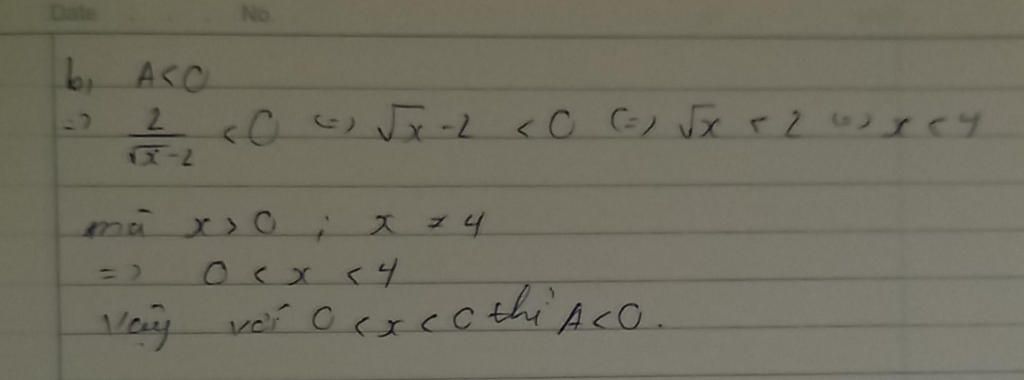 Date . . . No.
b, A < 0
=> \frac{2}{\sqrt{x}-2} < 0 <=> \sqrt{x} - 2 < 0 <=> \sqrt{x} < 2 <=> x < 4
mà x > 0 ; x ≠ 4
=> 0 < x < 4
Vậy với 0 < x < 0 thì A < 0.